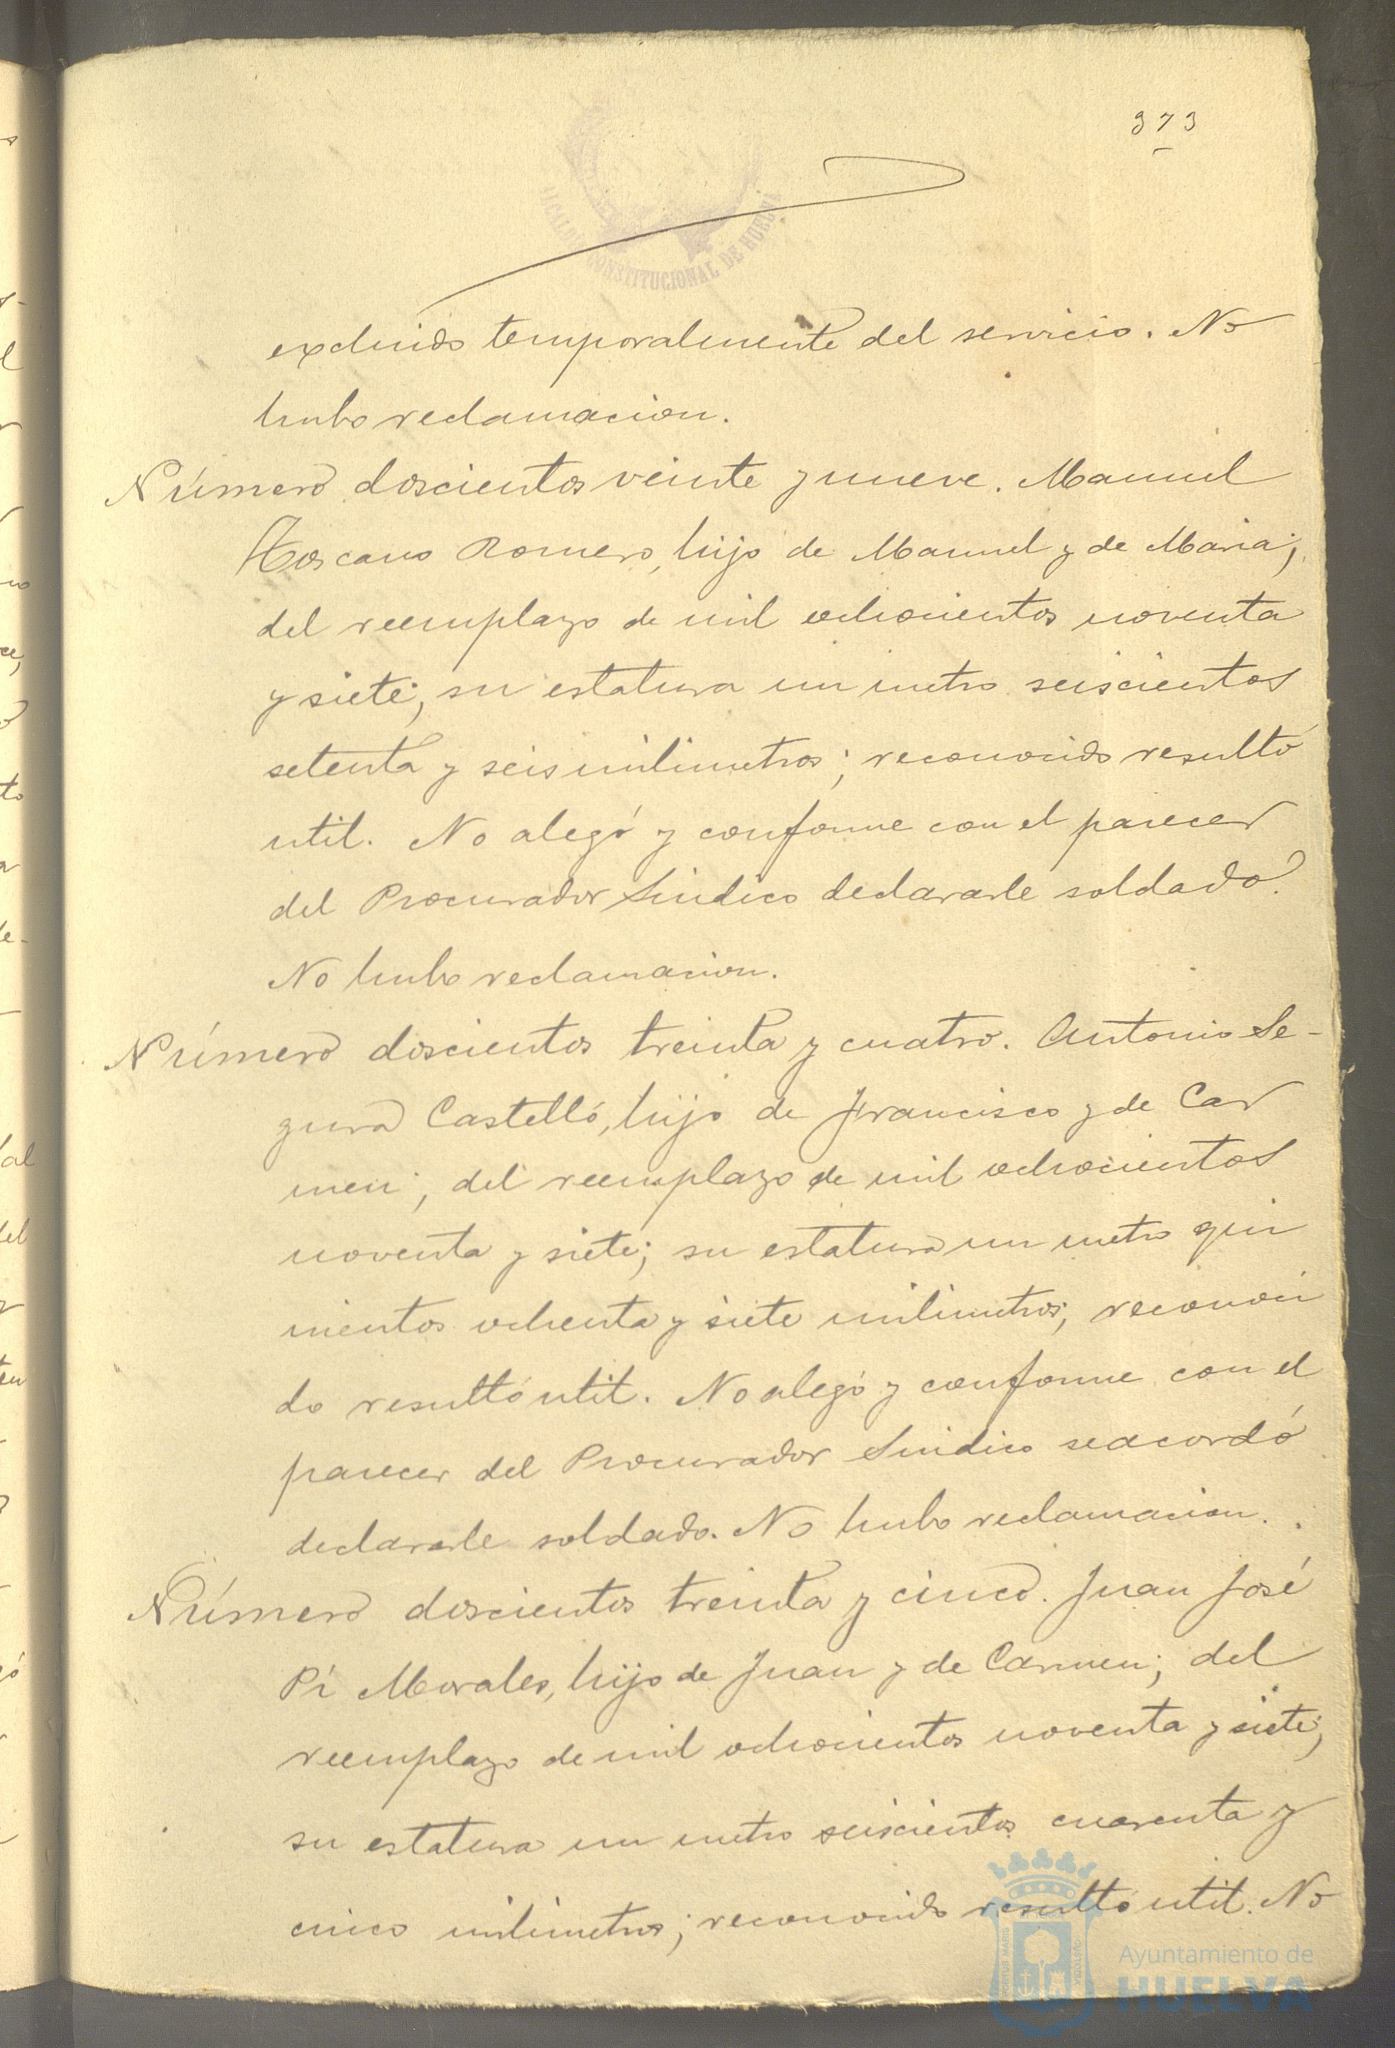 373
ALCALDIA CONSTITUCIONAL DE HUELVA
excluido temporalmente del servicio. No
hubo reclamacion.
Número doscientos veinte y nueve. Manuel
Toscano Romero, hijo de Manuel y de Maria;
del reemplazo de mil ochocientos noventa
y siete; su estatura un metro seiscientos
setenta y seis milimetros; reconocido resultó
util. No alegó y conforme con el parecer
del Procurador Sindico declararle soldado.
No hubo reclamacion.
Número doscientos treinta y cuatro. Antonio Se-
gura Castelló, hijo de Francisco y de Car
men; del reemplazo de mil ochocientos
noventa y siete; su estatura un metro qui
nientos ochenta y siete milimetros; reconoci
do resultó util. No alegó y conforme con el
parecer del Procurador Sindico se acordó
declararle soldado. No hubo reclamacion.
Número doscientos treinta y cinco. Juan José
Pí Morales, hijo de Juan y de Carmen; del
reemplazo de mil ochocientos noventa y siete;
su estatura un metro seiscientos cuarenta y
cinco milimetros; reconocido resultó util. No
Ayuntamiento de
HUELVA